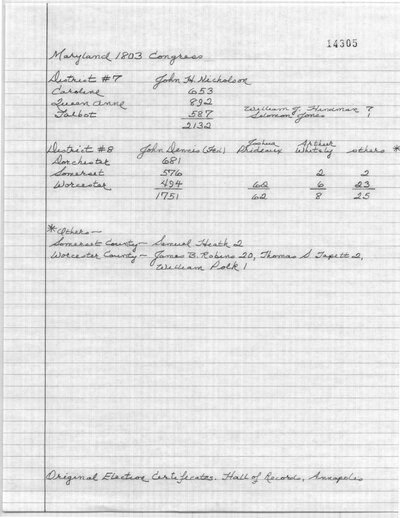 14305
Maryland 1803 Congress
District #7 John H. Nicholson
Caroline 653
Queen Anne 892 William J. Hindman 7
Talbot 587 Solomon Jones 1
2132
District #8 John Dennis (Fed) Joshua Prideaux Arther Whitely others *
Dorchester 681
Somerset 576 2 2
Worcester 494 62 6 23
1751 62 8 25
*Others—
Somerset County - Samuel Heath 2
Worcester County - James B. Robins 20, Thomas S. Tapett 2,
William Polk 1
Original Election Certificates. Hall of Records, Annapolis